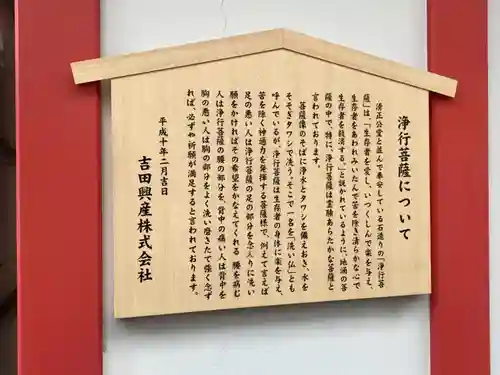 浄行菩薩について
清正公堂と並んで奉安している石造りの「浄行菩
薩」は、「生存者を愛し、いつくしんで楽を与え、
生存者をあわれみいたんで苦を除き清らかな心で
生存者を救済する。」と説かれているように、地涌の菩
薩の中で、特に、浄行菩薩は霊験あらたかな菩薩と
言われております。
菩薩像のそばに浄水とタワシを備えおき、水を
そそぎタワシで洗う。そこで一名を「洗い仏」とも
呼んでいるが、浄行菩薩は生存者の身体に楽を与え、
苦を除く神通力を発揮する菩薩様で、例えて言えば
足の悪い人は浄行菩薩の足の部分を念入りに洗い
願をかければその希望をかなえてくれる 腰を病む
人は浄行菩薩の腰の部分を、背中の痛い人は背中を
胸の悪い人は胸の部分をよく洗い磨きたで強く念ず
れば、必ずや祈願が満足すると言われております。
平成十年二月吉日
吉田興産株式会社